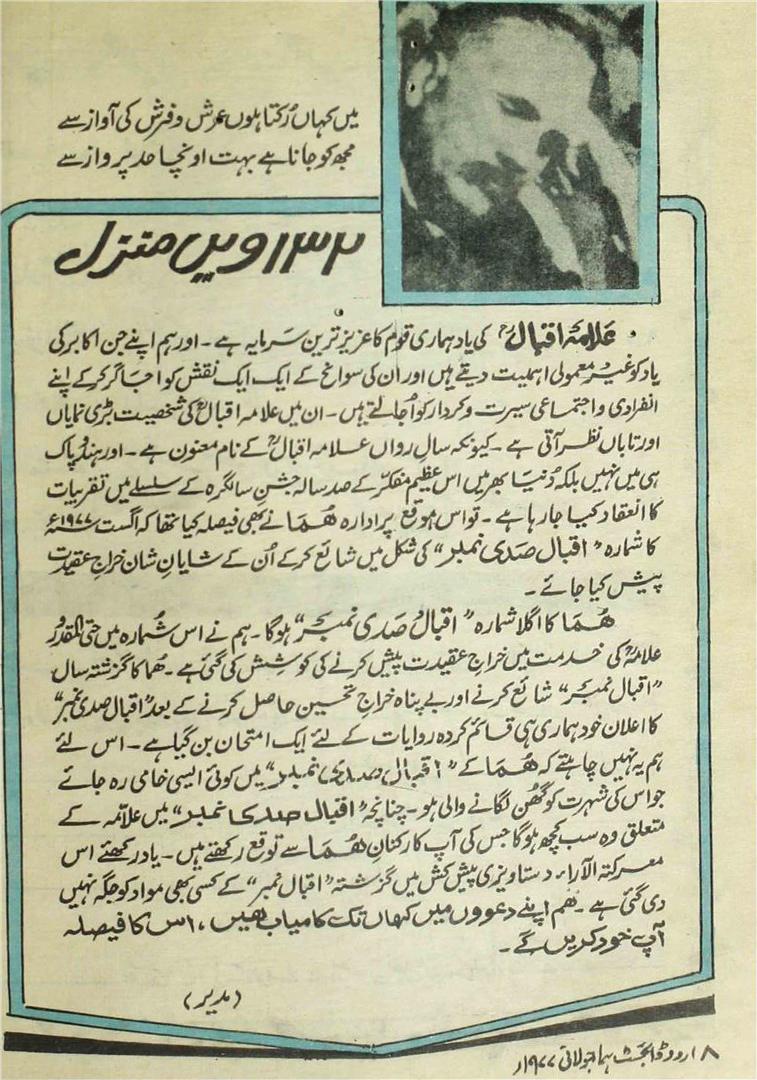 میں کہاں رُکتا ہوں عرش و فرش کی آواز سے
مجھ کو جانا ہے بہت اونچا حدِ پرواز سے
۱۳۲ ویں منزل
علامہ اقبالؒ کی یاد ہماری قوم کا عزیز ترین سَرمایہ ہے - اور ہم اپنے جن اکابر کی
یاد کو غیر معمولی اہمیت دیتے ہیں اور ان کی سوانح کے ایک ایک نقش کو اجاگر کرکے اپنے
انفرادی و اجتماعی سیرت و کردار کو اُجالتے ہیں - ان میں علامہ اقبالؒ کی شخصیت بڑی نمایاں
اور تاباں نظر آتی ہے - کیونکہ سالِ رواں علامہ اقبالؒ کے نام معنون ہے - اور ہند و پاک
ہی میں نہیں بلکہ دُنیا بھر میں اس عظیم مفکّر کے صد سالہ جشنِ سالگرہ کے سلسلے میں تقریبات
کا انعقاد کیا جا رہا ہے - تو اس موقع پر ادارہ ھُما نے بھی فیصلہ کیا تھا کہ اگست ۱۹۷۷ء
کا شمارہ "اقبال صدی نمبر" کی شکل میں شائع کرکے اُن کے شایانِ شان خراجِ عقیدت
پیش کیا جائے -
ھُما کا اگلا شمارہ "اقبال صدی نمبر" ہوگا - ہم نے اس شمارہ میں حتی المقدور
علامہؒ کی خدمت میں خراجِ عقیدت پیش کرنے کی کوشش کی گئی ہے - ھما کا گزشتہ سال
"اقبال نمبر" شائع کرنے اور بے پناہ خراجِ تحسین حاصل کرنے کے بعد "اقبال صدی نمبر"
کا اعلان خود ہماری ہی قائم کردہ روایات کے لئے ایک امتحان بن گیا ہے - اس لئے
ہم یہ نہیں چاہتے کہ ھُما کے "اقبال صدی نمبر" میں کوئی ایسی خامی رہ جائے
جو اس کی شہرت کو گھن لگانے والی ہو - چنانچہ "اقبال صدی نمبر" میں علامہ کے
متعلق وہ سب کچھ ہوگا جس کی آپ کارکنان ھُما سے توقع رکھتے ہیں - یاد رکھئے اس
معرکتہ الآراء دستاویزی پیش کش میں گزشتہ "اقبال نمبر" کے کسی بھی مواد کو جگہ نہیں
دی گئی ہے - ھم اپنے دعووں میں کہاں تک کامیاب ھیں، اس کا فیصلہ
آپ خود کریں گے -
(مدیر)
۸ اردو ڈائجسٹ ہما جولائی ۱۹۷۷ء